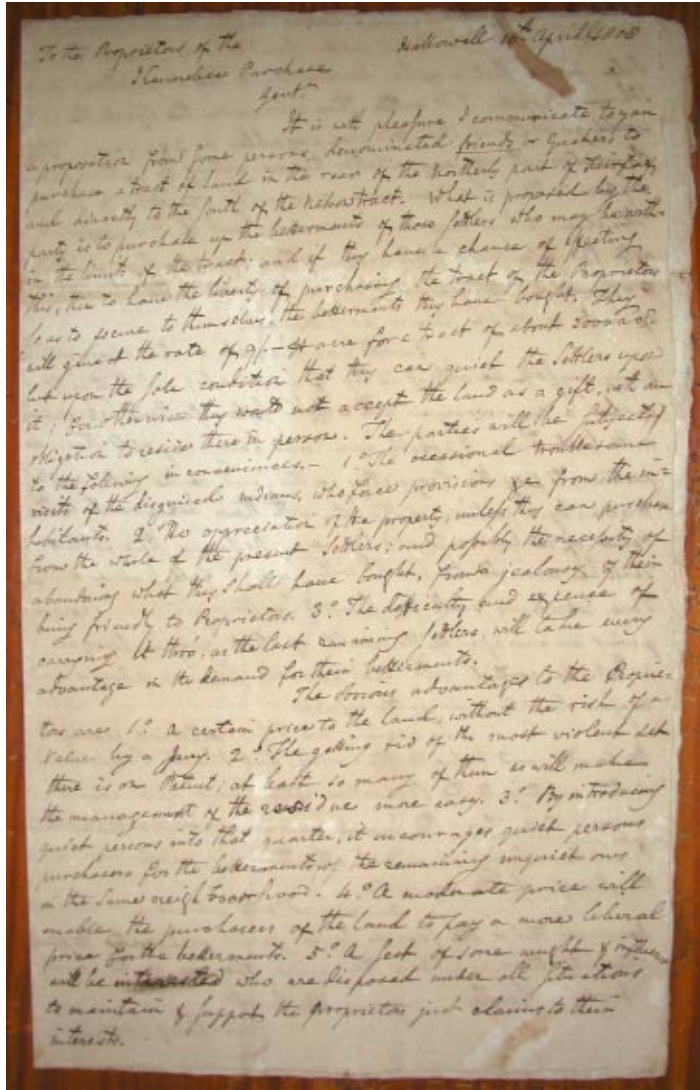 To the Proprietors of the
Hallowell 10th April 1808
Kennebec Purchase
Gentn
It is with pleasure I communicate to you
a proposition from some persons denominated friends or Quakers to
purchase a tract of land in the rear of the Northerly part of
and directly to the South of the tract. What is proposed by the
party is to purchase up the betterments of those settlers who may be with-
in the limits of the tract; and if they have a chance of effecting
this, then to have the liberty of purchasing the tract of the Proprietors
so as to secure to themselves, the betterments they have bought. They
will give at the rate of 9/- acre for a tract of about
but upon the sole condition that they can quiet the settlers upon
it; for otherwise they would not accept the land as a gift, with an
obligation to reside there in person. The parties will be subjected
to the following inconveniences.- 1o The occasional troublesome
visits of the disguised indians, who force provisions &c from the in-
habitants. 2o No appreciation of the property, unless they can purchase
from the whole of the present settlers; and possibly the necessity of
abandoning what they shall have bought, from a jealousy of their
being friendly to Proprietors. 3o The difficulty and expense of
carrying it thro', as the last remaining settlers, will take every
advantage in the demand for their betterments.
The obvious advantages to the Proprie-
tors are 1o A certain price to the land, without the risk of a
value by a Jury. 2o The getting rid of the most violent set
there is on Patent; at least so many of them as will make
the management of the residue more easy. 3o By introducing
quiet persons into that quarter, it encourages quiet persons
purchasers for the betterments of the remaining unquiet ones
in the same neighbourhood. 4o A moderate price will
enable the purchasers of the land to pay a more liberal
price for the betterments. 5o A sect of some weight & influence
will be interested who are disposed under all situations
to maintain & support the proprietors just claims to their
interests.